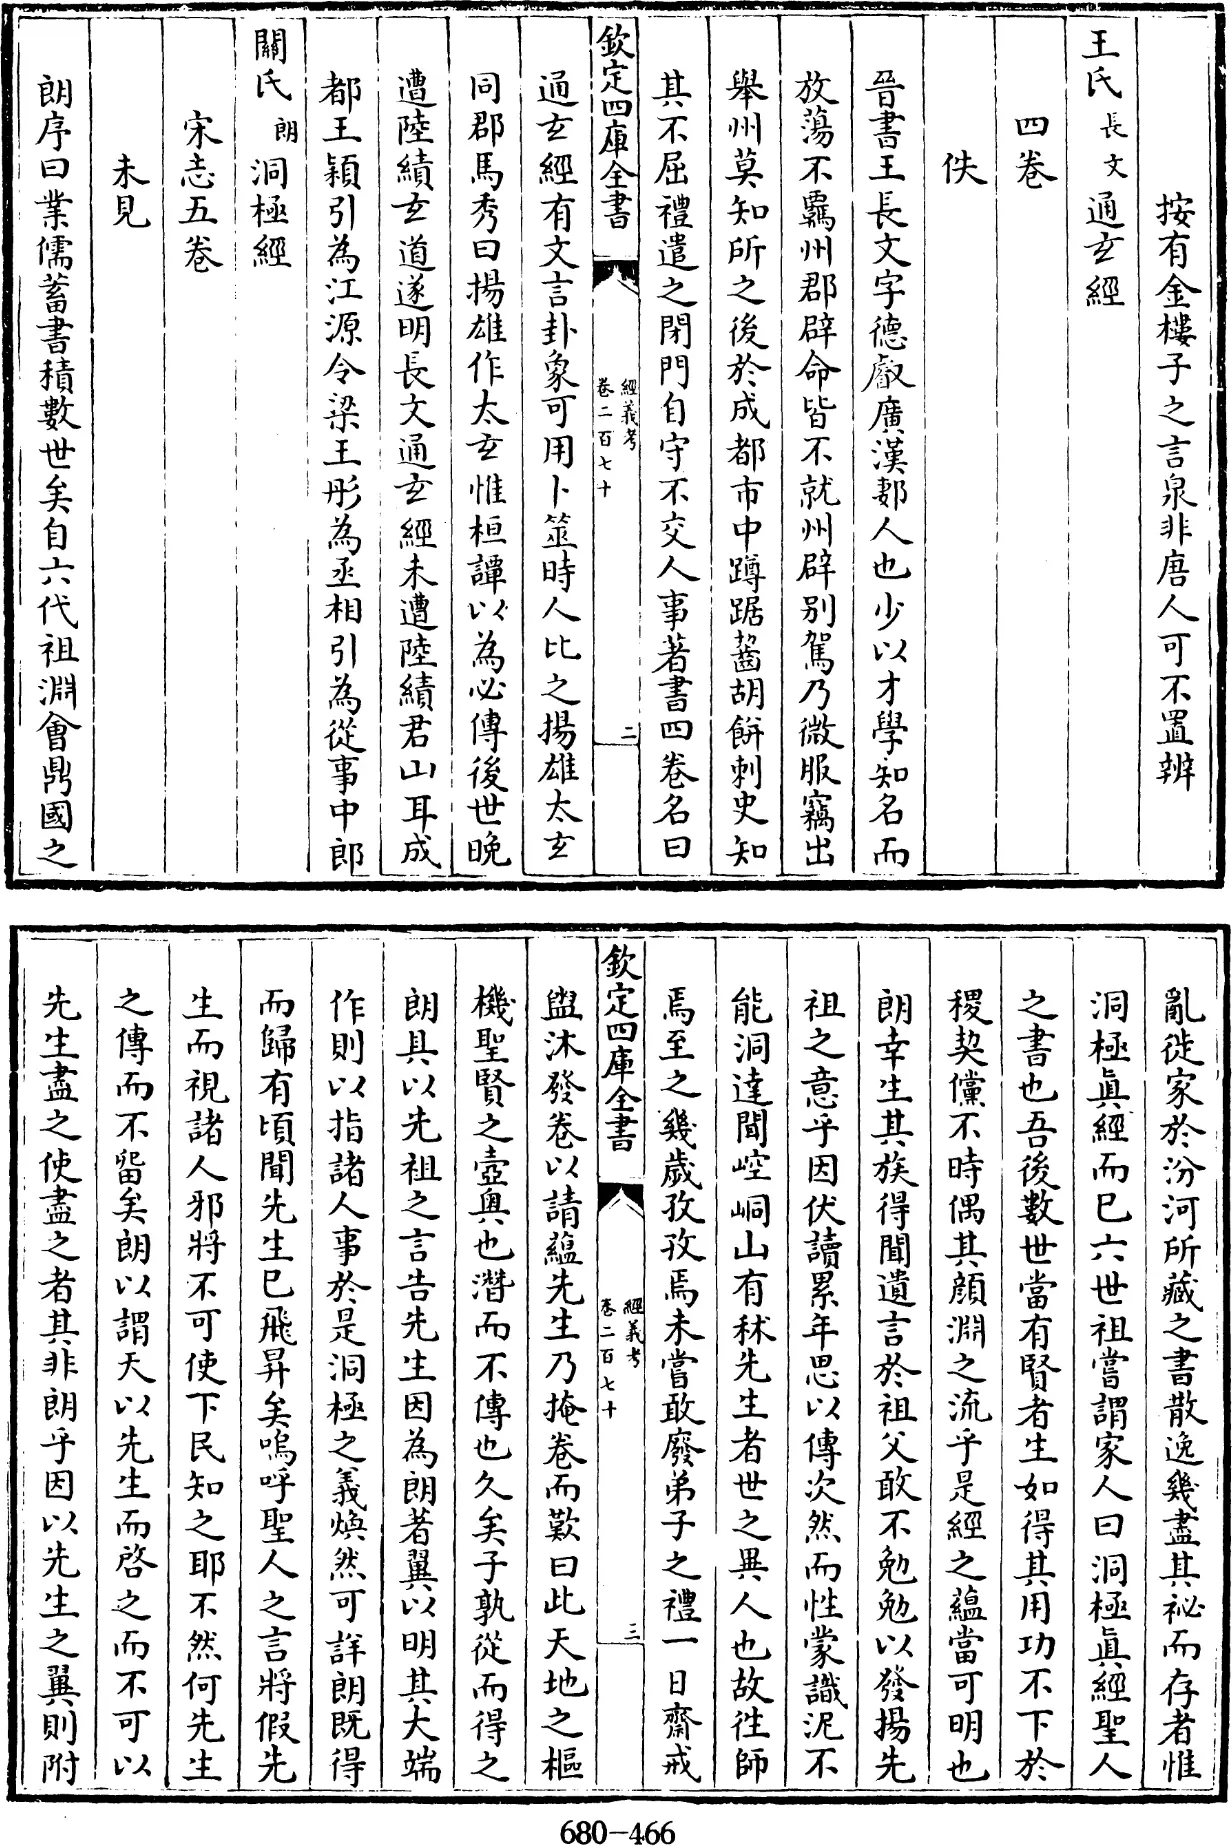 按有金樓子之言泉非唐人可不置辨
王氏長文通玄經
四卷
佚
晉書王長文字德叡廣漢郪人也少以才學知名而
放蕩不羈州郡辟命皆不就州辟別駕乃微服竊出
舉州莫知所之後於成都市中蹲踞齧胡餅刺史知
其不屈禮遣之閉門自守不交人事著書四卷名曰
欽定四庫全書
經義考
卷二百七十
二
通玄經有文言卦象可用卜筮時人比之揚雄太玄
同郡馬秀曰揚雄作太玄惟桓譚以為必傳後世晚
遭陸績玄道遂明長文通玄經未遭陸績君山耳成
都王穎引為江源令梁王彤為丞相引為從事中郎
關氏朗洞極經
宋志五卷
未見
朗序曰業儒蓄書積數世矣自六代祖淵會鼎國之
亂徙家於汾河所藏之書散逸幾盡其祕而存者惟
洞極眞經而已六世祖嘗謂家人曰洞極眞經聖人
之書也吾後數世當有賢者生如得其用功不下於
稷契儻不時偶其顔淵之流乎是經之蘊當可明也
朗幸生其族得聞遺言於祖父敢不勉勉以發揚先
祖之意乎因伏讀累年思以傳次然而性蒙識泥不
能洞達聞崆峒山有秫先生者世之異人也故往師
焉至之幾歲孜孜焉未嘗敢廢弟子之禮一日齋戒
欽定四庫全書
經義考
卷二百七十
三
盥沐發卷以請蘊先生乃掩卷而歎曰此天地之樞
機聖賢之壼奥也潛而不傳也久矣子孰從而得之
朗具以先祖之言告先生因為朗著翼以明其大端
作則以指諸人事於是洞極之義煥然可詳朗既得
而歸有頃聞先生已飛昇矣嗚呼聖人之言將假先
生而視諸人邪將不可使下民知之耶不然何先生
之傳而不留矣朗以謂天以先生而啓之而不可以
先生盡之使盡之者其非朗乎因以先生之翼則附
680-466